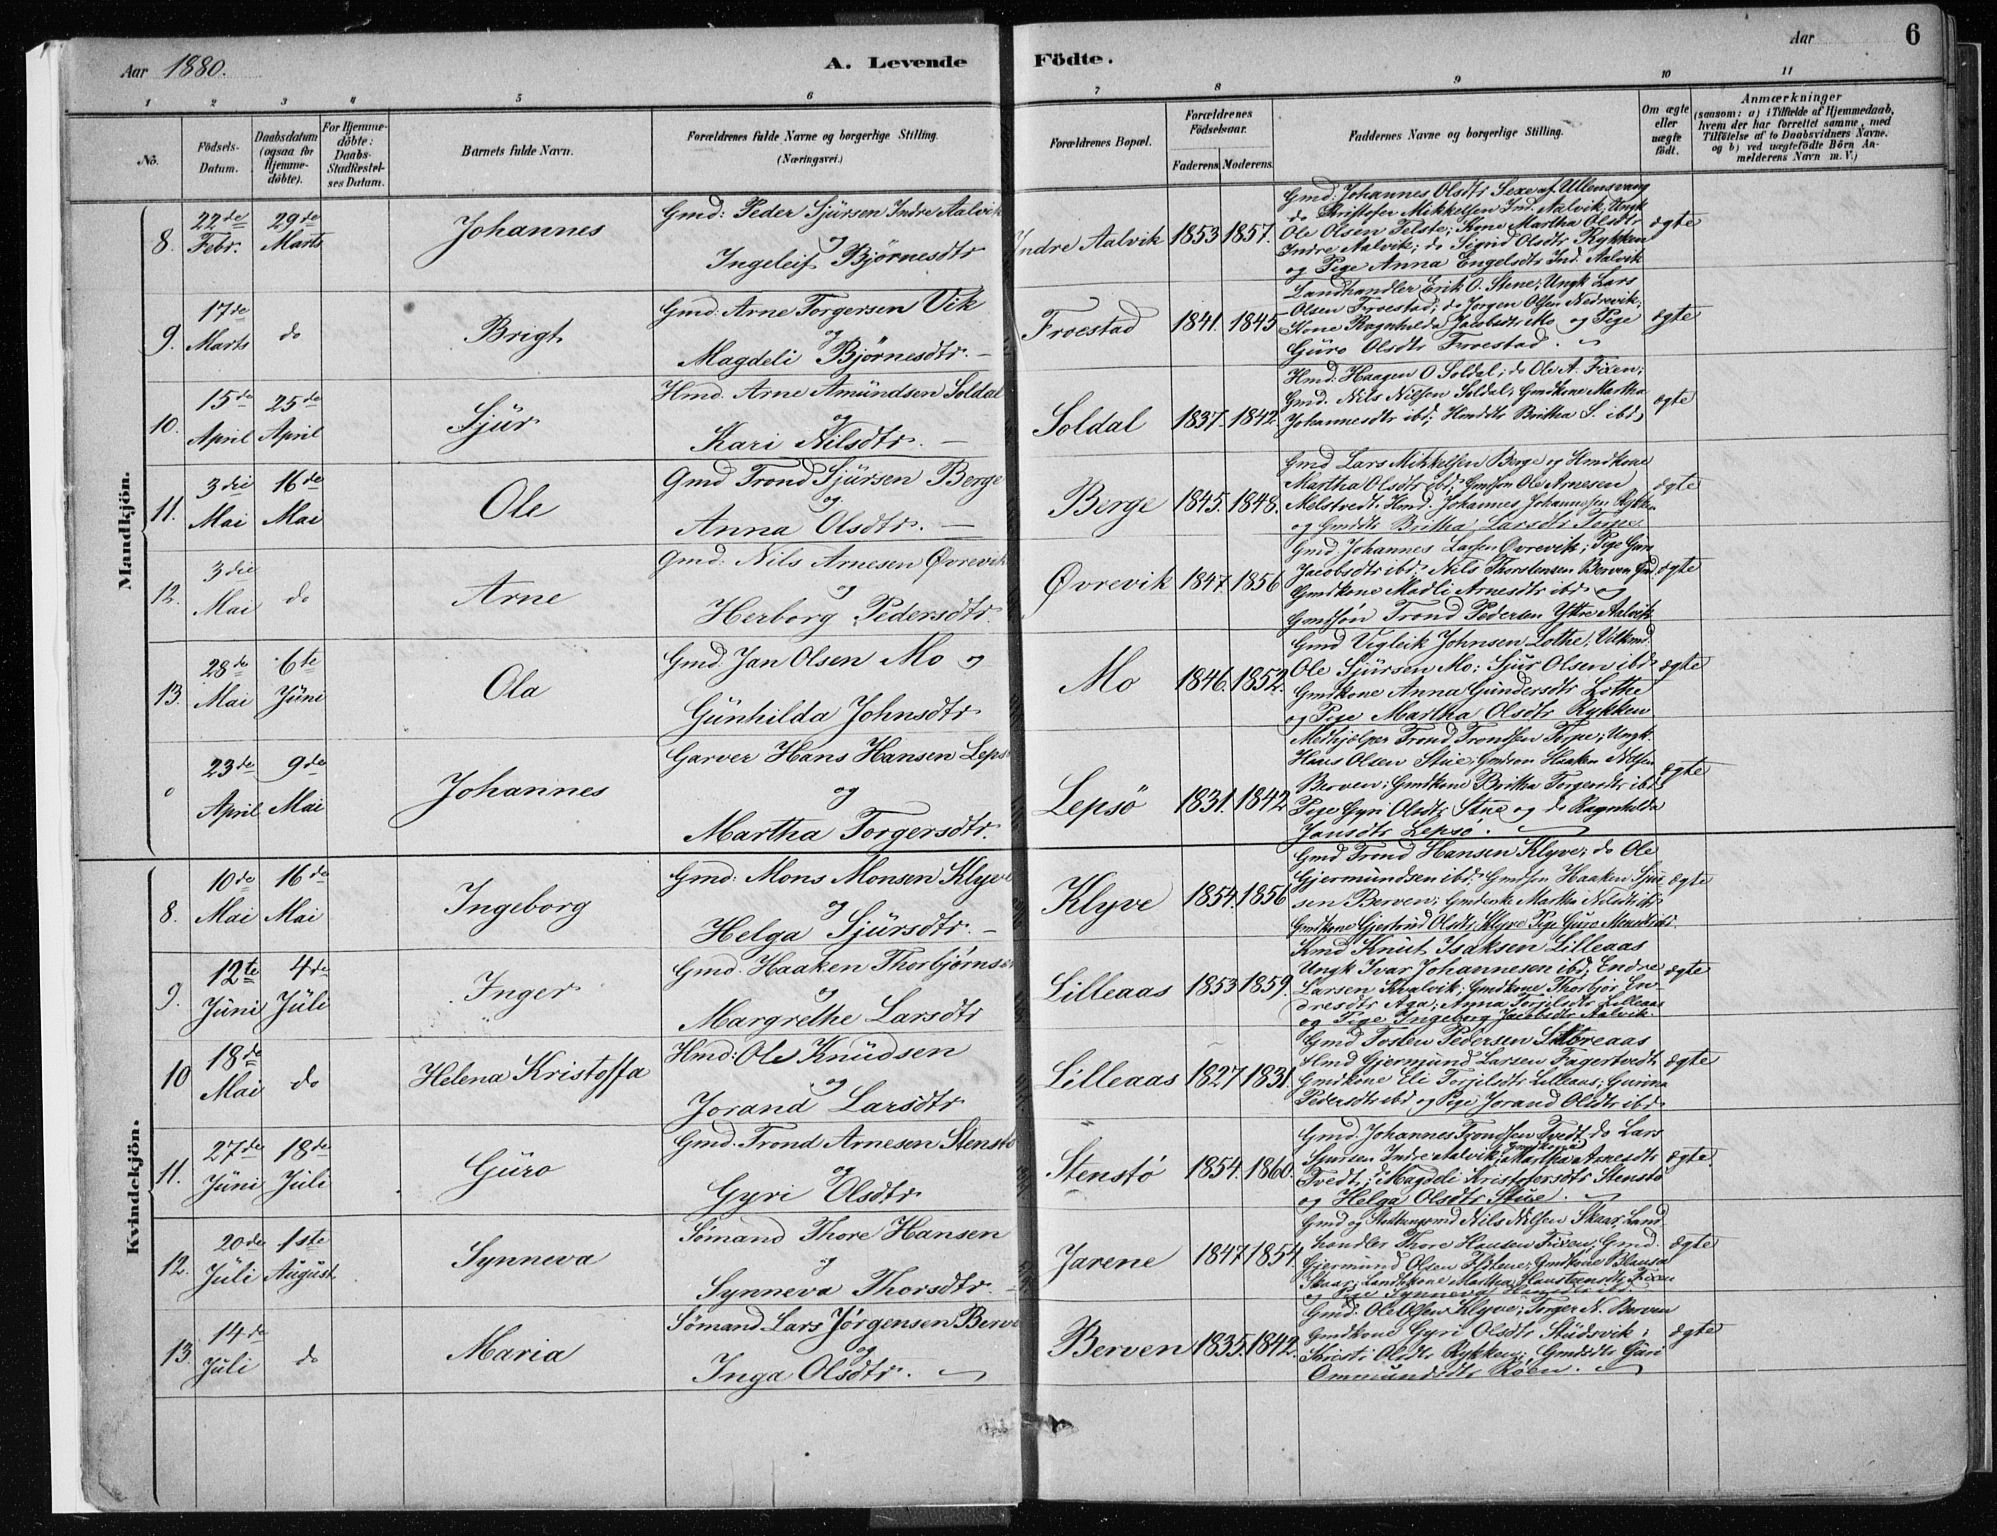 Aar 1880.
A. Levende
Födte.
Aar
6
1 2 3 4 5 6 7 8 9 10 11
No.
Födsels-Datum.
Daabsdatum (ogsaa for Hjemme-döbte).
For Hjemme-döbte: Daabs-Stadfæstel-ses Datum.
Barnets fulde Navn.
Forældrenes fulde Navne og borgerlige Stilling.
(Næringsvei.)
Forældrenes Bopæl.
Forældrenes Födselsaar.
Faderens. Moderens.
Faddernes Navne og borgerlige Stilling.
Om ægte eller uægte födt.
Anmærkninger
(saasom: a) i Tilfælde af Hjemmedaab,
hvem der har forrettet samme, med
Tilföielse af to Daabsvidners Navne,
og b) ved uægtefödte Börn An-
melderens Navn m. V.)
Mandkjön.
8. 22de Febr. 29de Marts Johannes
Gmd: Peder Sjursen Indre Aalvik
og
Ingeleif Bjørnesdtr
Indre Aalvik 1853 1857.
Gmd. Johannes Olsdtr Sexe af Ullensvang
do Christofer Mikkelsen Ind. Aalvik; Ungk
Ole Olsen Telste; Kone Martha Olsdtr
Indre Aalvik; do Sigrid Olsdtr Rykken
og Pige Anna Engelsdtr Ind. Aalvik
ægte
9. 17de Marts do Brigt
Gmd: Arne Torgersen Vik
og
Magdeli Bjørnesdtr. —
Froestad 1841. 1845
Landhandler Erik O. Stene; Ungk Lars
Olsen Froestad; do Jorgen Olsen Nedrevik;
Kone Ragnhilda Jacobsdtr Mo og Pige
Guro Olsdtr Froestad.
ægte
10. 15de April 25de April Sjur
Hmd. Arne Amundsen Soldal
og
Kari Nilsdtr. —
Soldal 1837. 1842
Hmd: Haagen O Soldal; do Ole A. Fixen;
Gmd. Nils Nilsen Soldal; Gmdkone Martha
Johannesdtr ibd; Hmddtr Britha S. ibd,
ægte
11. 3die Mai 16de Mai Ole
Gmd Trond Sjursen Berge
og
Anna Olsdtr. —
Berge 1845. 1848.
Gmd Lars Mikkelsen Berge og Hmdkone
Martha Olsdtr ibd; Gmdsøn Ole Arnesen
Melstvedt. Hmd. Johannes Johannesen Rykken
og Gmddtr Britha Larsdtr Torpe
ægte
12. 3die Mai do Arne
Gmd: Nils Arnesen Øvrevik
og
Herborg Pedersdtr.
Øvrevik 1847. 1856
Gmd. Johannes Larsen Øvrevik; Pige Guri
Jacobsdtr ibd; Nils Thorstensen Berven Gmd.
Gmdkone Madli Arnesdtr ibd og
Gmdsøn Trond Pedersen Yttre Aalvik
ægte
13. 28de Mai 6te Juni Ola
Gmd. Jan Olsen Mo og
Gunhilda Johnsdtr
Mo 1846. 1852.
Gmd Vigleik Johnsen Lothe;
Ole Sjursen Mo; Sjur Olsen ibd.
Gmdkone Anna Gundersdtr Lothe
og Pige Martha Olsdtr Rykken
ægte
23de April 9de Mai Johannes
Garver Hans Hansen Lepsø
og
Martha Torgersdtr.
Lepsö 1831. 1842
Medhjelper Trond Trondsen Torpe; Ungk.
Hans Olsen Stue; Gmdson Haaken Nilsen
Berven; Gmdkone Britha Torgersdtr ibd;
Pige Gyri Olsdtr Stue og do Ragnhilda
Jansdtr Lepsø.
ægte
Kvindekjön.
8. 10de Mai 16de Mai Ingeborg
Gmd: Mons Monsen Klyve
og
Helga Sjursdtr. —
Klyve 1854. 1856
Gmd Trond Hansen Klyve; do Ole
Gjermundsen ibd; Gmdson Haaken Sjur-
sen Berven; Martha Nilsdtr ibd;
Gmdkone Gjertrud Olsdtr Klyve Pige Guro Monsdtr ibd
ægte
9. 12te Juni 4de Juli Inger
Gmd. Haaken Thorbjørnsen
og
Margrethe Larsdtr
Lilleaas 1853 1859.
Kmd Knut Isaksen Lilleaas
Ungk Ivar Johannesen ibd; Endre
Larsen Kvalvik; Gmdkone Thorbjør En-
dresdtr Aga; Anna Torjilsdtr Lilleaas
og Pige Ingeborg Jacobsdtr Aalvik.
ægte
10 18de Mai do Helena Kristoffa
Hmd: Ole Knudsen
og
Jorand Larsdtr
Lilleaas 1827 1831
Gmd Tosten Pedersen Storeaas
Hmd Gjermund Larsen Fagertvedt,
Gmdkone Eli Torjilsdtr Lilleaas; Gurina
Pedersdtr ibd og Pige Jorand Olsdtr ibd
ægte
11. 27de Juni 18de Juli Guro
Gmd. Trond Arnesen Stenstø
og
Gyri Olsdtr
Stenstö 1854. 1860.
Gmd. Johannes Trondsen Tvedt, do Lars
Sjursen Indre Aalvik; Gmdkone Martha Arnesdtr
Tvedt; do Magdeli Kristofersdtr Stenstø
og Helga Olsdtr Stue.
ægte.
12. 20de Juli 1ste August Synneva
Sømand Thore Hansen
og
Synneva Thorsdtr. —
Jarene 1847 1854
Gmd og Nils Nilsen Skaar, Land-
handler Thore Hansen Fixen; Gmd.
Gjermund Olsen; Gmdkone
Skaar; Martha Fixen
og Pige Synneva
ægte
13. 14de Juli do Maria
Sømand Lars Jørgensen Berven
og
Inga Olsdtr.
Berven 1835. 1842.
Gmd. Ole Olsen Klyve; Torger N. Berven
Gmdkone Gyri Olsdtr Studsvik;
Kristi Olsdtr Rykken; Gmddtr Guri
Ommundsdtr Røen.
ægte